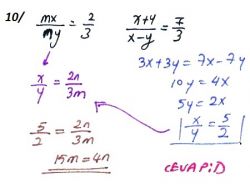 10/ mx/ny = 2/3
x+y/x-y = 7/3
x/y = 2n/3m
3x+3y = 7x-7y
10y = 4x
5y = 2x
x/y = 5/2
5/2 = 2n/3m
15m = 4n
CEVAP: D